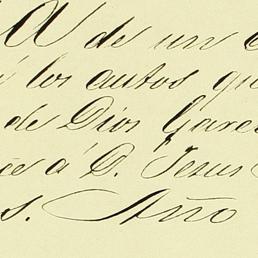 A de un
á los autos que
de Dios Garc
ce á D. Jesus
s. Año